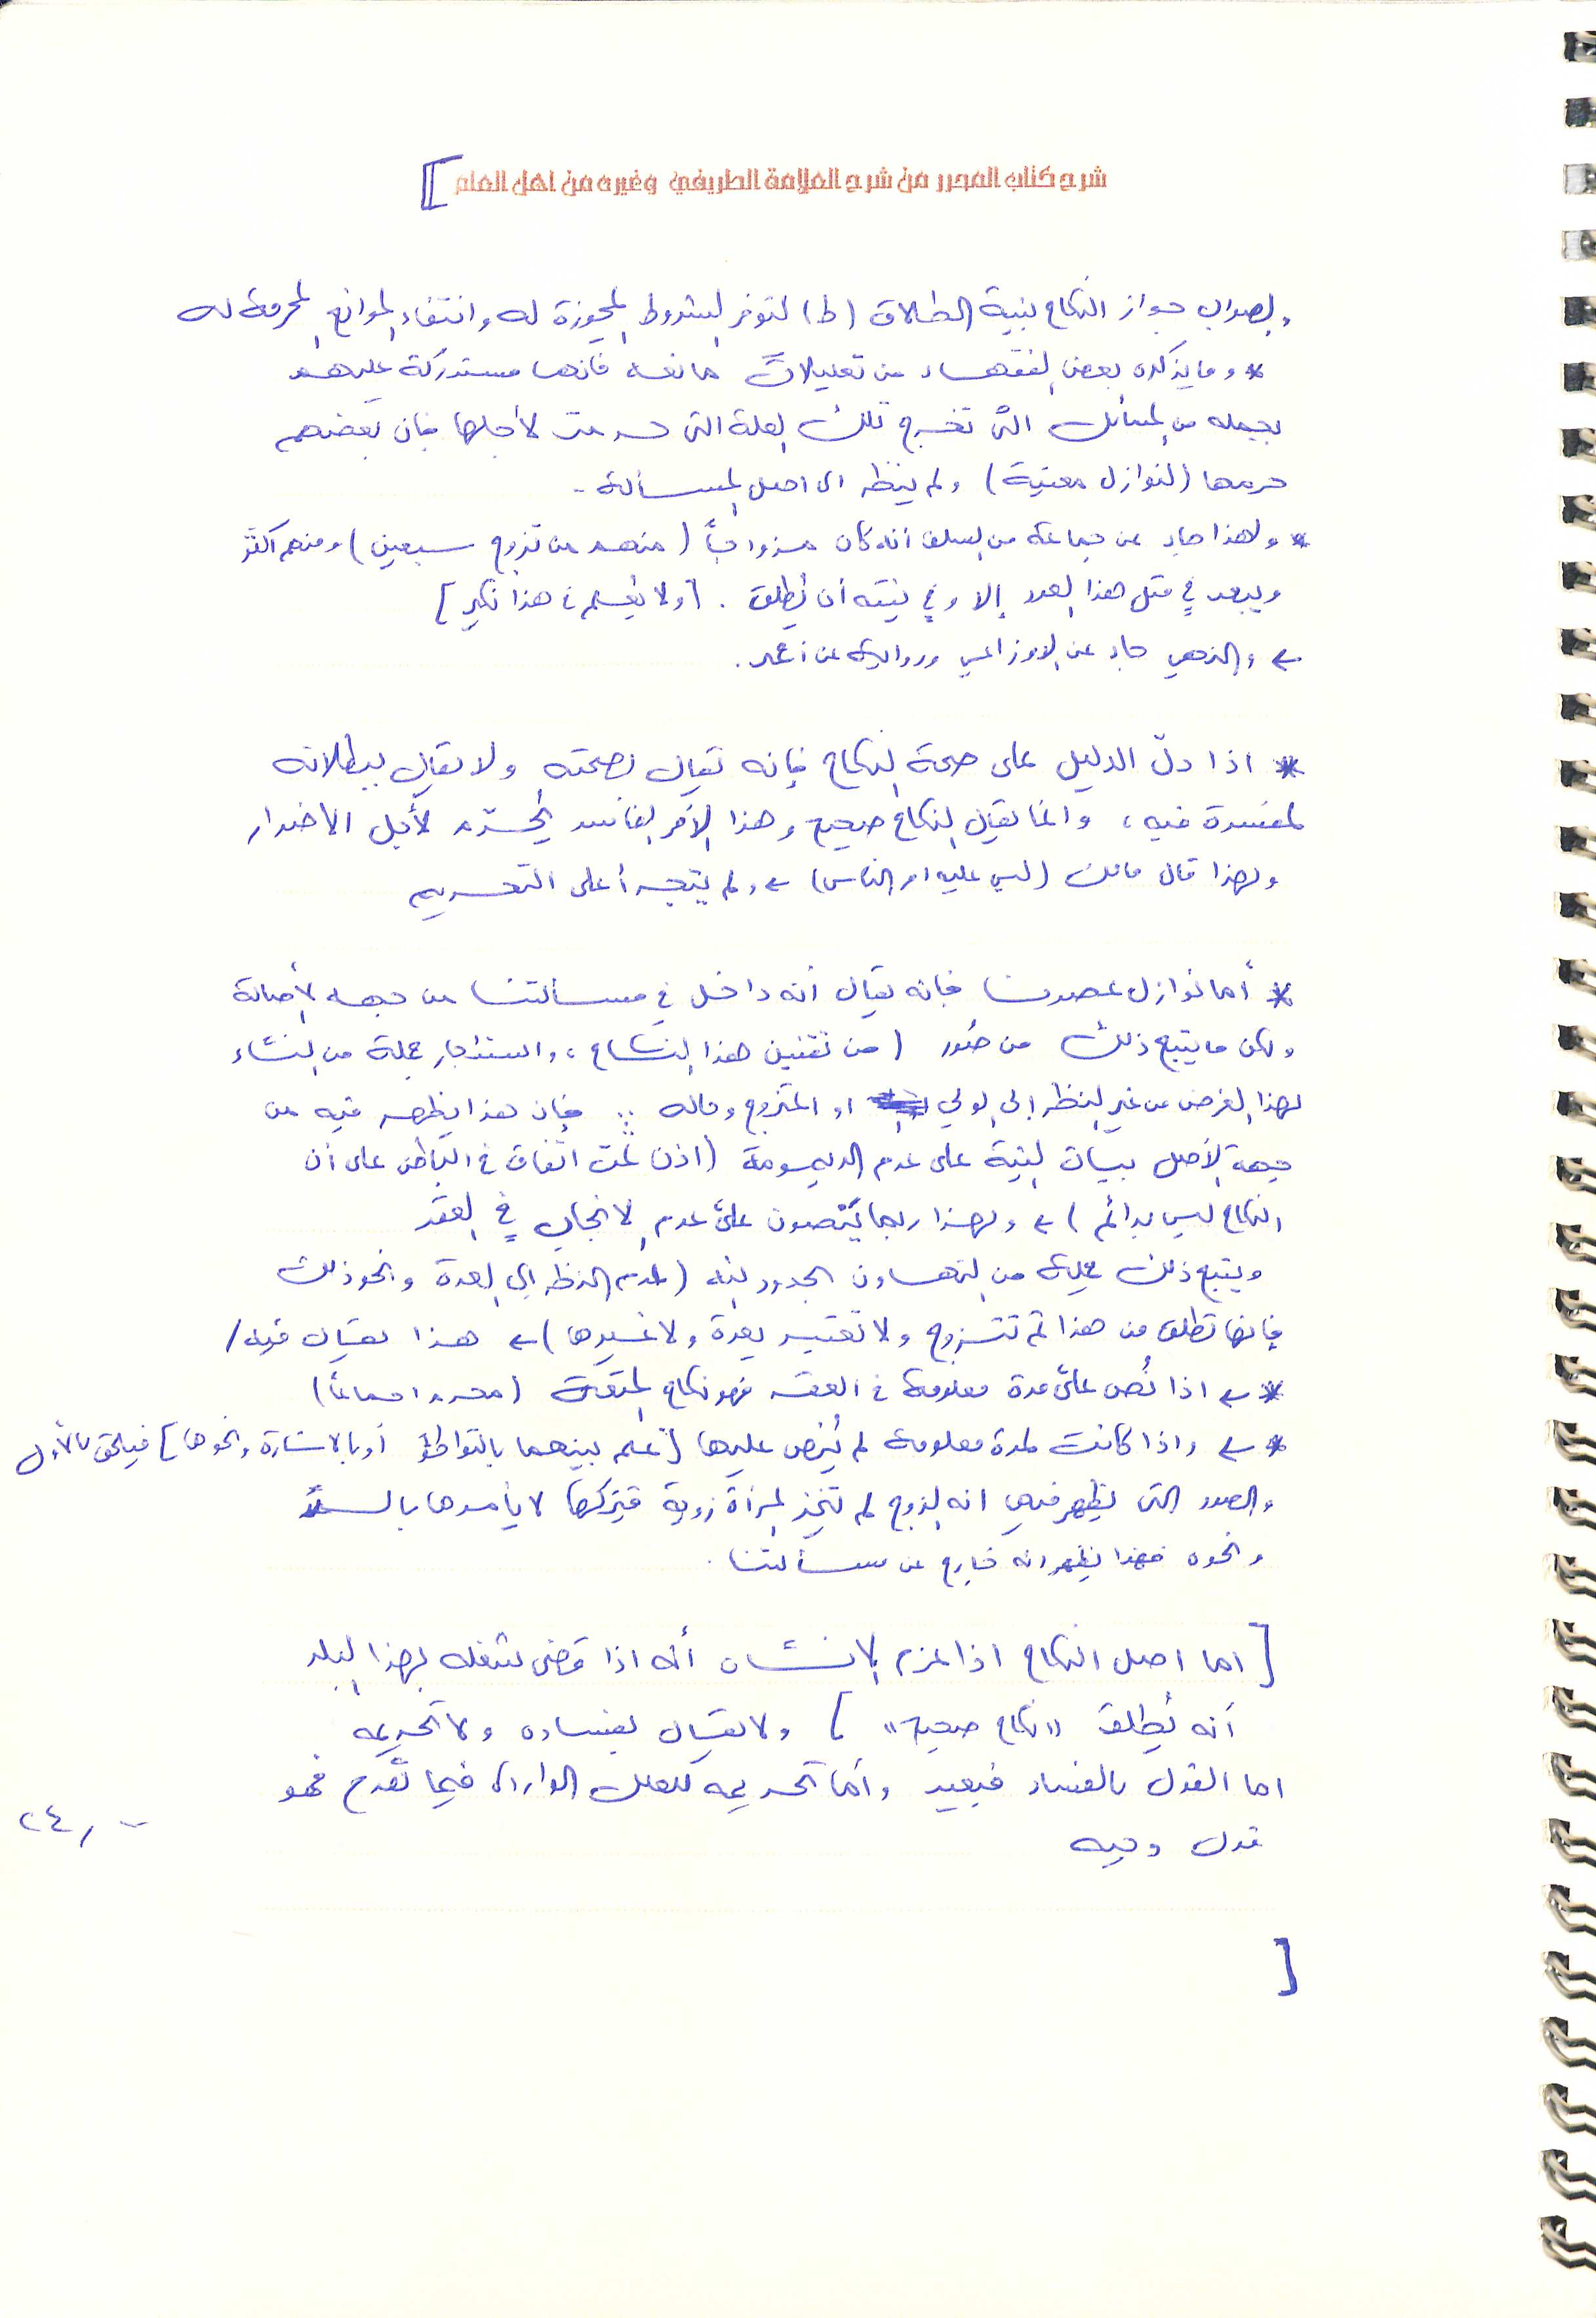 شرح كتاب المحرر من شرح العلامة الطريفي وغيره من اهل العلم ]
والصواب جواز النكاح بنية الطلاق (ط) لتوفر الشروط المجوزة له وانتفاء الموانع المحرمة له
* وما يذكره بعض الفقهاء من تعليلات مانعه فانها مستدركة عليهم
بجمله من المسائل التي تخرج تلك العلة التي حرمت لأجلها فإن بعضهم
حرمها (لنوازل معينة) ولم ينظر الى اصل المسألة -
* ولهذا جاء عن جماعة من السلف أنه كان مزواجاً (منهم من تزوج سبعين) ومنهم أكثر
ويبعد في مثل هذا العدد إلا وفي نيته أن يطلق . [ولا يعلم في هذا نكير]
← والنهي جاء عن الاوزاعي ورواية عن أحمد .
* اذا دلّ الدليل على صحة النكاح فإنه يقال بصحته ولا يقال ببطلانه
لمفسدة فيه ، وانما يقال النكاح صحيح وهذا الأمر الفاسد يحرم لأجل الاضرار
ولهذا قال مالك (ليس عليه امر الناس) ← ولم يتجرأ على التحريم
* أما نوازل عصرنا فإنه يقال أنه داخل في مسألتنا من جهه الأصالة
ولكن ما يتبع ذلك من صُور (من تقنين هذا النكاح ، واستئجار جملة من النساء
لهذا الغرض من غير النظر إلى الولي او المتزوج وماله .. فإن هذا يظهر فيه من
جهة الأصل بيان النية على عدم الديمومة (اذن ثمت اتفاق في الباطن على أن
النكاح ليس بدائم) ← ولهذا ربما ينصون على عدم الانجاب في العقد
ويتبع ذلك جملة من التهاون (عدم النظر إلى العدة ونحو ذلك
فإنها تطلق من هذا ثم تتزوج ولا تعتبر بعدة ولا غيرها) ← هذا يقال فيه /
* ← اذا نُص على مدة معلومة في العقد فهو نكاح المتعة (محرم اجماعاً)
* ← واذا كانت المدة معلومة لم يُنص عليها [عُلم بينهما بالتواطؤ أو بالاشارة ونحوها] فيلحق بالأول
والصور التي يظهر فيها انه الزوج لم تتخذ المرأة زوجة فيتركها لا يأمرها بالستر
ونحوه فهذا يظهر انه خارج عن مسألتنا .
[ اما اصل النكاح اذا عزم الانسان أنه اذا قضى شغله بهذا البلد
أنه يُطلق «نكاح صحيح» ] ولا يقال بفساده ولا تحريمه
اما القول بالفساد فبعيد وأما تحريمه للعلل الوارده فيما تقدم فهو
قول وجيه
٢٤٫٠
[